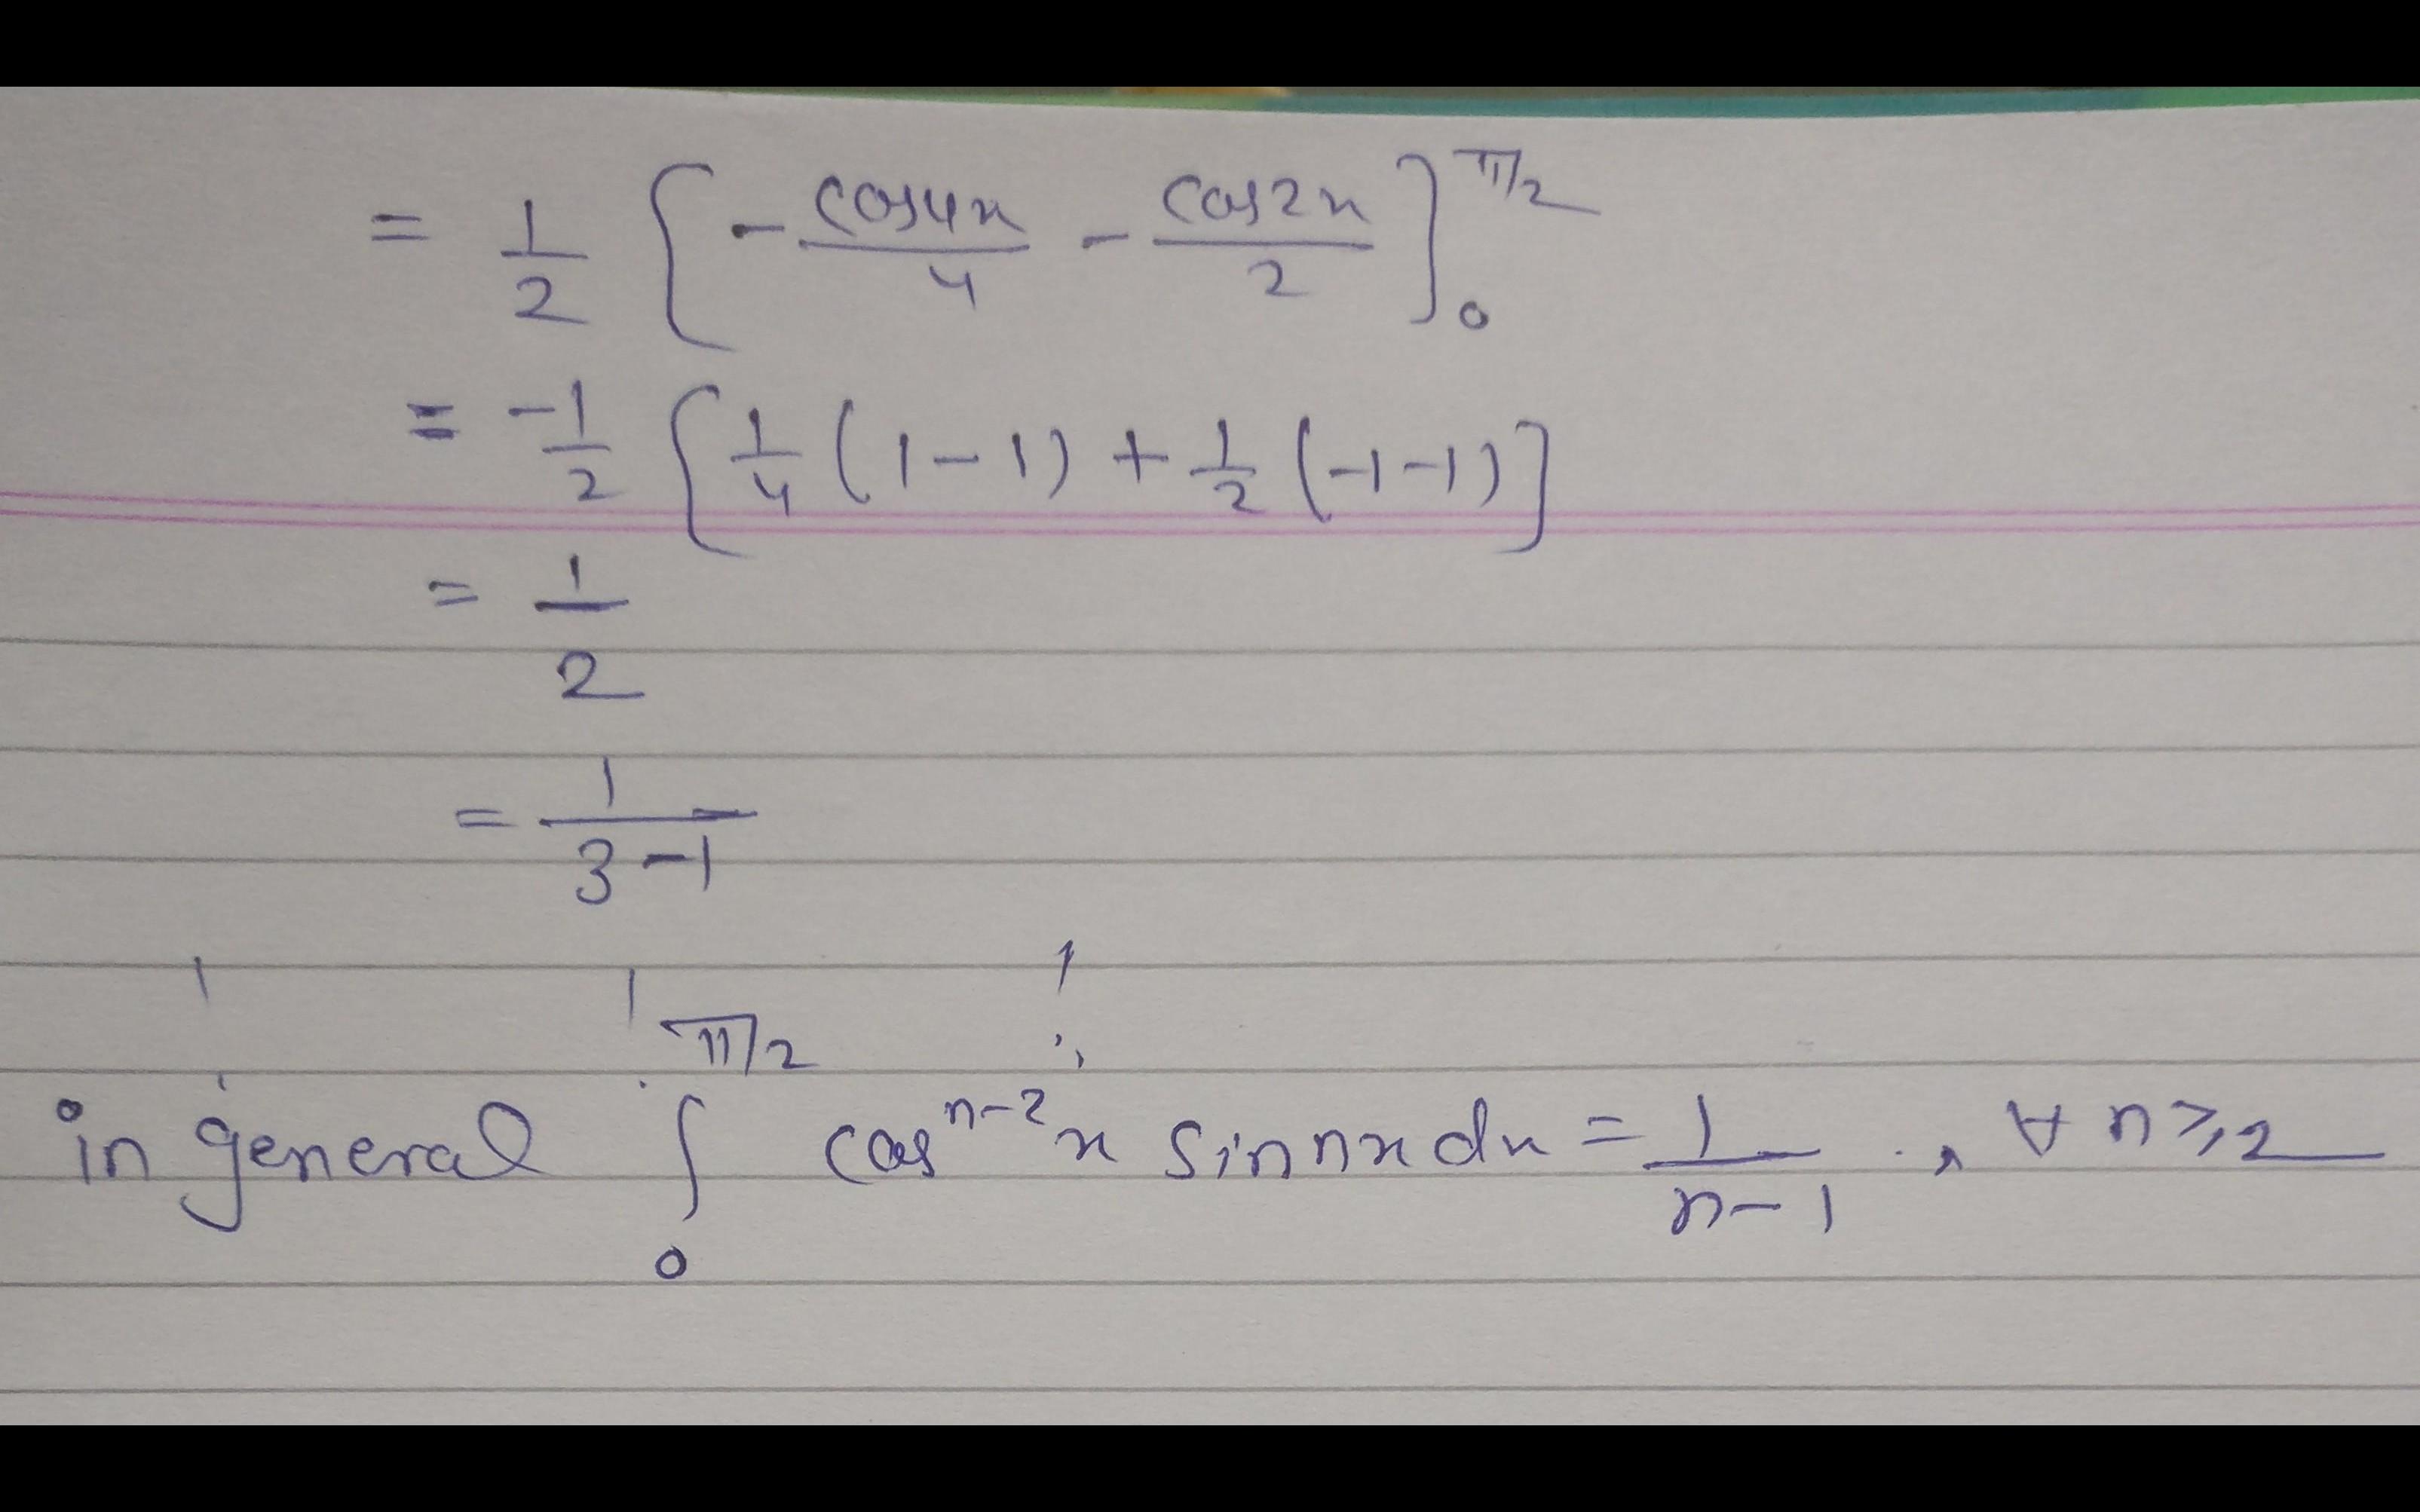 = 1/2 [ - cos4x/4 - cos2x/2 ]₀^π/2
= -1/2 [ 1/4 (1-1) + 1/2 (-1-1) ]
= 1/2
= 1/3-1
in general ∫₀^π/2 cos^n-2 x sin nx dx = 1/n-1 , ∀ n ≥ 2